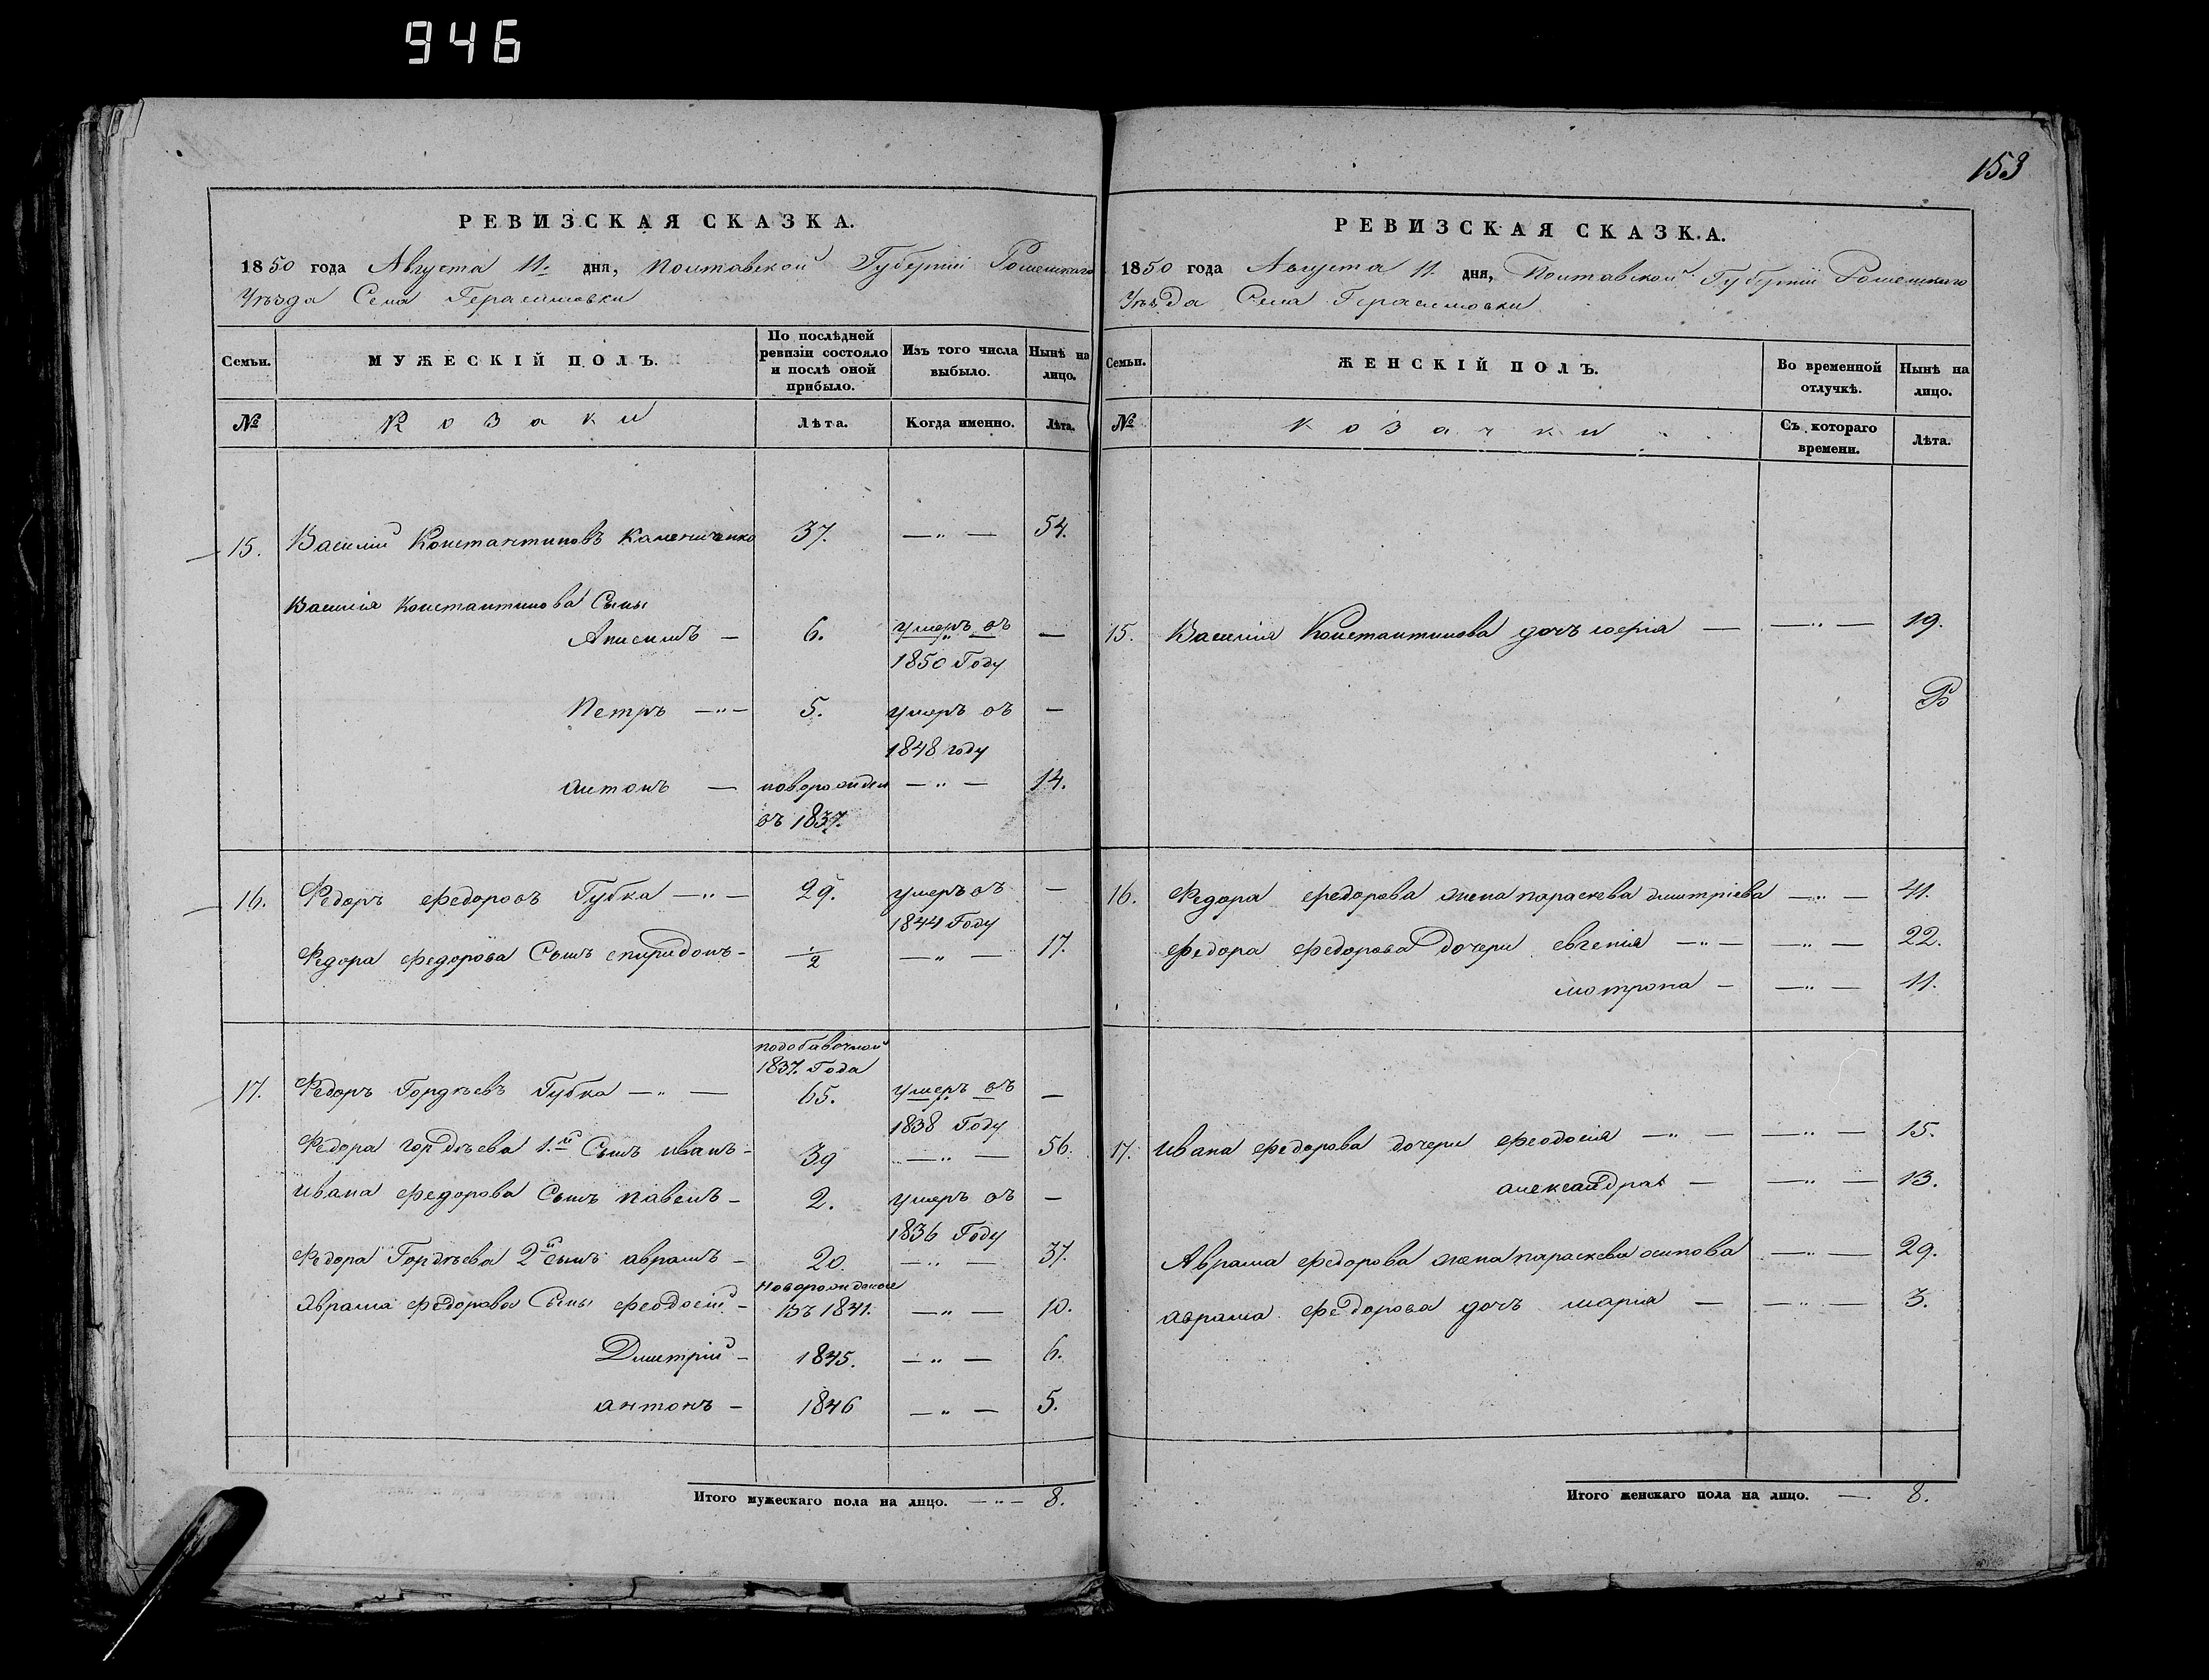 946
153
РЕВИЗСКАЯ СКАЗКА.
1850 года Августа 11. дня, Полтавской Губерніи Роменскаго
Уѣзда Села Герасимовки
Семьи. МУЖЕСКІЙ ПОЛЪ. По послѣдней ревизіи состояло и послѣ оной прибыло. Изъ того числа выбыло. Нынѣ на лицо.
№ Козаки Лѣта. Когда именно. Лѣта.
15. Василій Константиновъ Калениченко 37. —„— 54.
Василія Константинова Сыны
Анисимъ — 6. умеръ въ —
1850 Году
Петръ —„— 5. умеръ въ —
1848 году
антонъ — новорожден —„— 14.
въ 1837.
16. Федоръ федоровъ Губка —„— 29. умеръ въ —
1844 Году
Федора федорова Сынъ спиридонъ - 1/2 —„— 17.
подобавочной
1837. Года
17. Федоръ Гордѣевъ Губка —„— 65. умеръ въ —
1838 Году
Федора гордѣева 1.й Сынъ иванъ - 39 —„— 56.
ивана федорова Сынъ павелъ - 2. умеръ въ —
1836 Году
Федора Гордѣева 2й сынъ аврамъ - 20. —„— 37.
новорожденые
Аврама федорова Сыны феодосій - въ 1841. —„— 10.
Дмитрій - 1845. —„— 6.
антонъ - 1846 —„— 5.
Итого мужескаго пола на лицо. —„— 8.
РЕВИЗСКАЯ СКАЗКА.
1850 года Августа 11. дня, Полтавской Губерніи Роменскаго
Уѣзда Села Герасимовки
Семьи. ЖЕНСКІЙ ПОЛЪ. Во временной отлучкѣ. Нынѣ на лицо.
№ козачки Съ котораго времени. Лѣта.
15. Василія Константинова дочь — —„— 19.
16. Федора федорова жена параскева дмитріева —„— 41.
федора федорова дочери евгенія —„— —„— 22.
мотрона — —„— 11.
17. ивана федорова дочери феодосія —„— —„— 15.
александра — —„— 13.
Аврама федорова жена параскева осипова —„— 29.
аврама федорова дочь марія — —„— 3.
Итого женскаго пола на лицо. — 8.